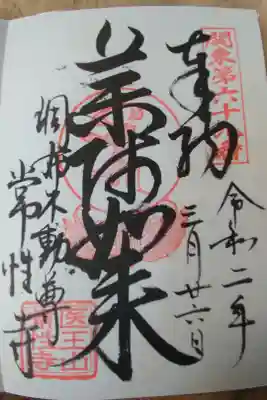 関東第六十八番
奉納
令和二年
三月廿六日
薬師如来
調布不動尊
常性寺
医王山
常性寺